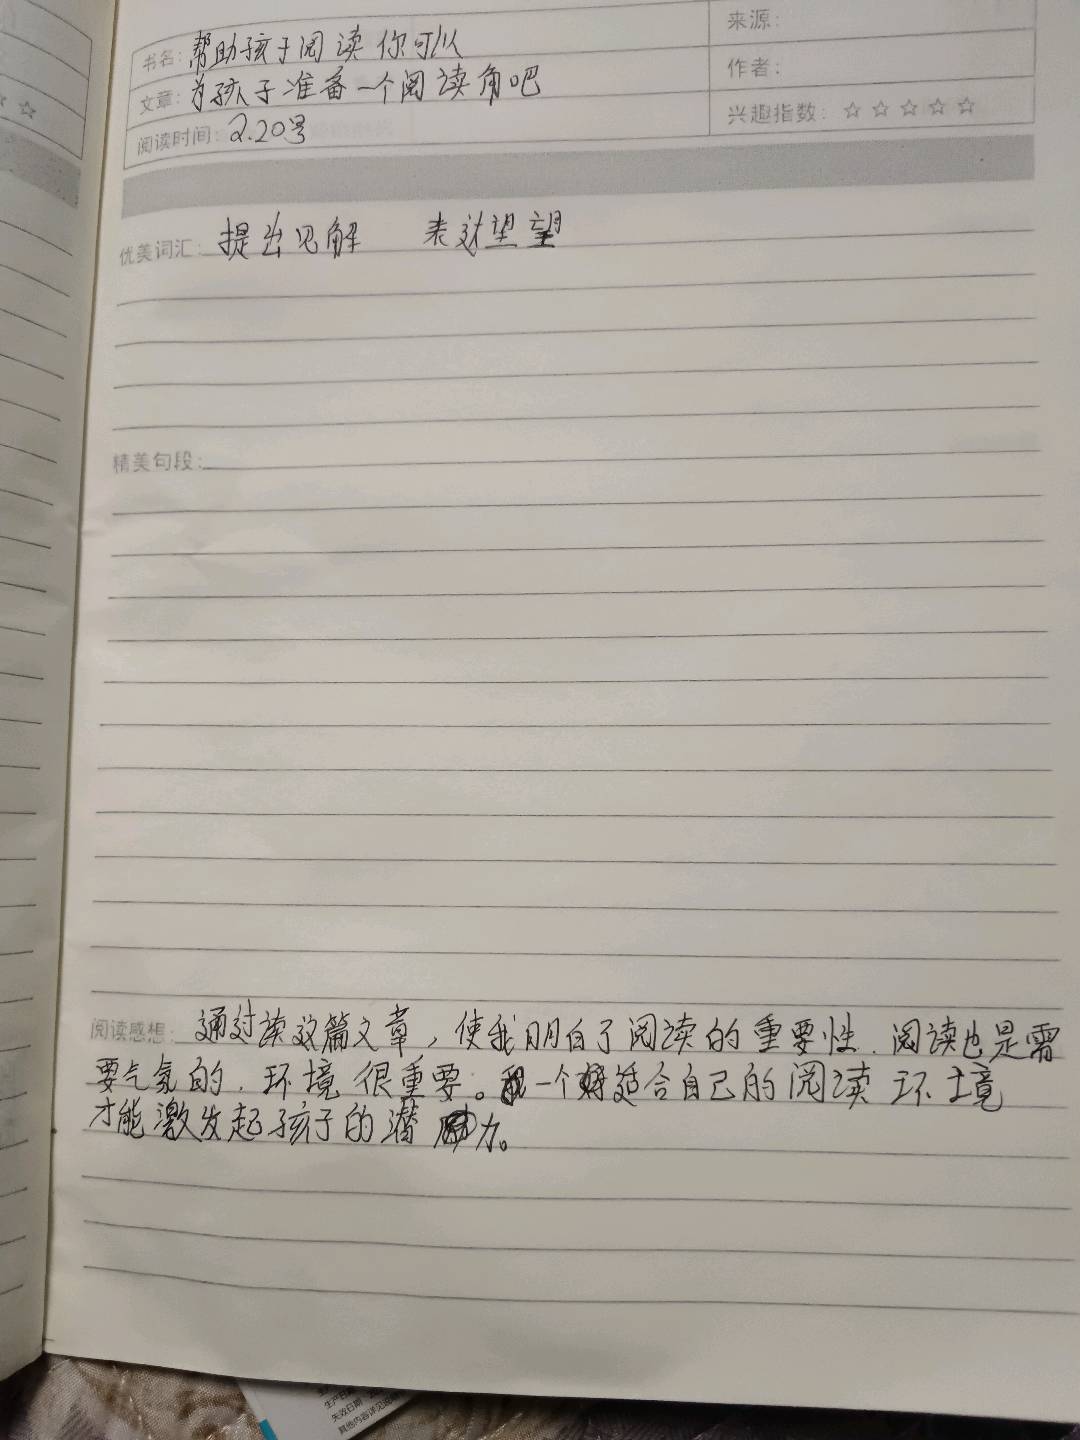 书名: 帮助孩子阅读 你可以
来源:
文章: 为孩子准备一个阅读角吧
作者:
阅读时间: 2.20号
兴趣指数: ☆☆☆☆☆
优美词汇: 提出见解 表达
精美句段:
阅读感想: 通过读这篇文章,使我明白了阅读的重要性.阅读也是需
要气氛的.环境很重要。一个适合自己的阅读环境
才能激发起孩子的潜力。
生产日期
失效日期
其他内容详见